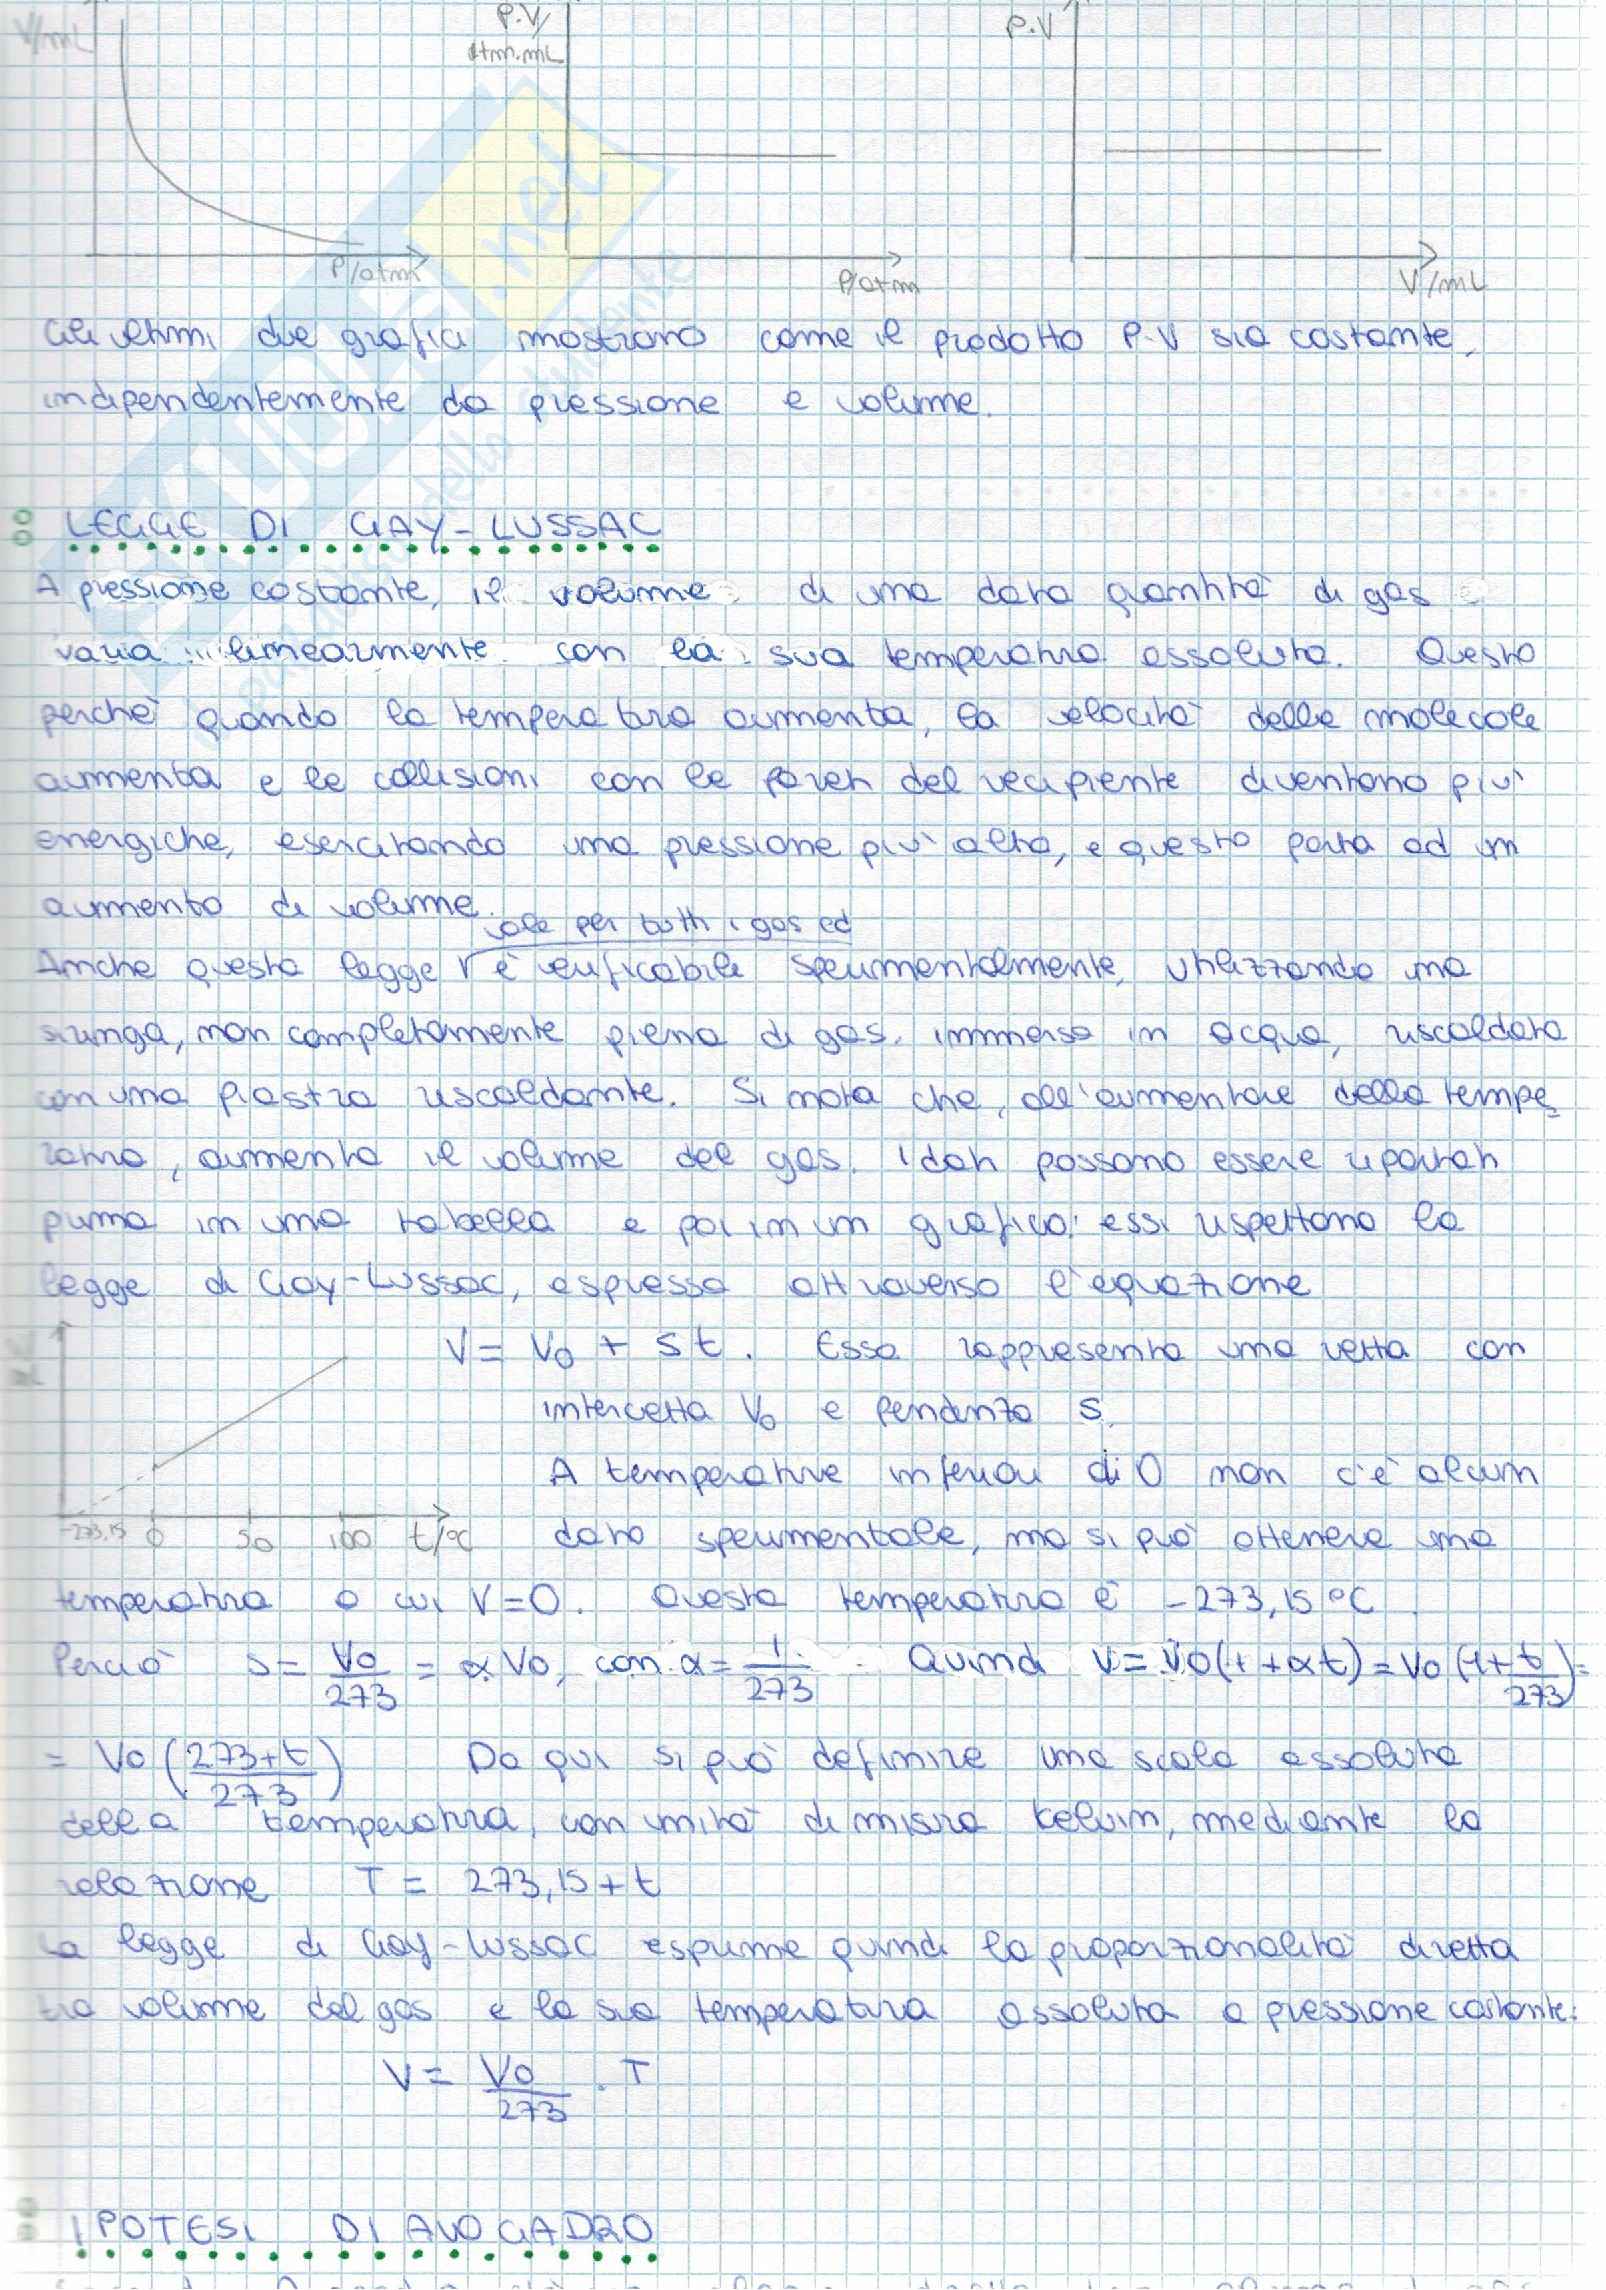 V/mL
P.V/
atm.mL
P.V
P/atm
P/atm
V/mL
Gli ultimi due grafici mostrano come il prodotto P.V sia costante,
indipendentemente da pressione e volume.
SKUOLA.net
paradiso dello studente
LEGGE DI GAY-LUSSAC
A pressione costante, il volume di una data quantità di gas
varia linearmente con la sua temperatura assoluta. Questo
perché quando la temperatura aumenta, la velocità delle molecole
aumenta e le collisioni con le pareti del recipiente diventano più
energiche, esercitando una pressione più alta, e questo porta ad un
aumento di volume.
vale per tutti i gas ed
Anche questa legge è verificabile sperimentalmente, utilizzando una
siringa, non completamente piena di gas, immersa in acqua, riscaldata
con una piastra riscaldante. Si nota che, all'aumentare della tempe
ratura, aumenta il volume del gas. I dati possono essere riportati
prima in una tabella e poi in un grafico: essi rispettano la
legge di Gay-Lussac, espressa attraverso l'equazione
V = V0 + st. Essa rappresenta una retta con
intercetta V0 e pendenza s.
A temperature inferiori di 0 non c'è alcun
-273,15 0 50 100 t/°C
dato sperimentale, ma si può ottenere una
temperatura a cui V=0. Questa temperatura è -273,15 °C.
Perciò s = V0/273 = αV0, con α = 1/273. Quindi V = V0(1+αt) = V0(1+t/273) =
= V0(273+t/273) Da qui si può definire una scala assoluta
della temperatura, con unità di misura kelvin, mediante la
relazione T = 273,15 + t
La legge di Gay-Lussac esprime quindi la proporzionalità diretta
tra volume del gas e la sua temperatura assoluta a pressione costante:
V = V0/273 . T
IPOTESI DI AVOGADRO